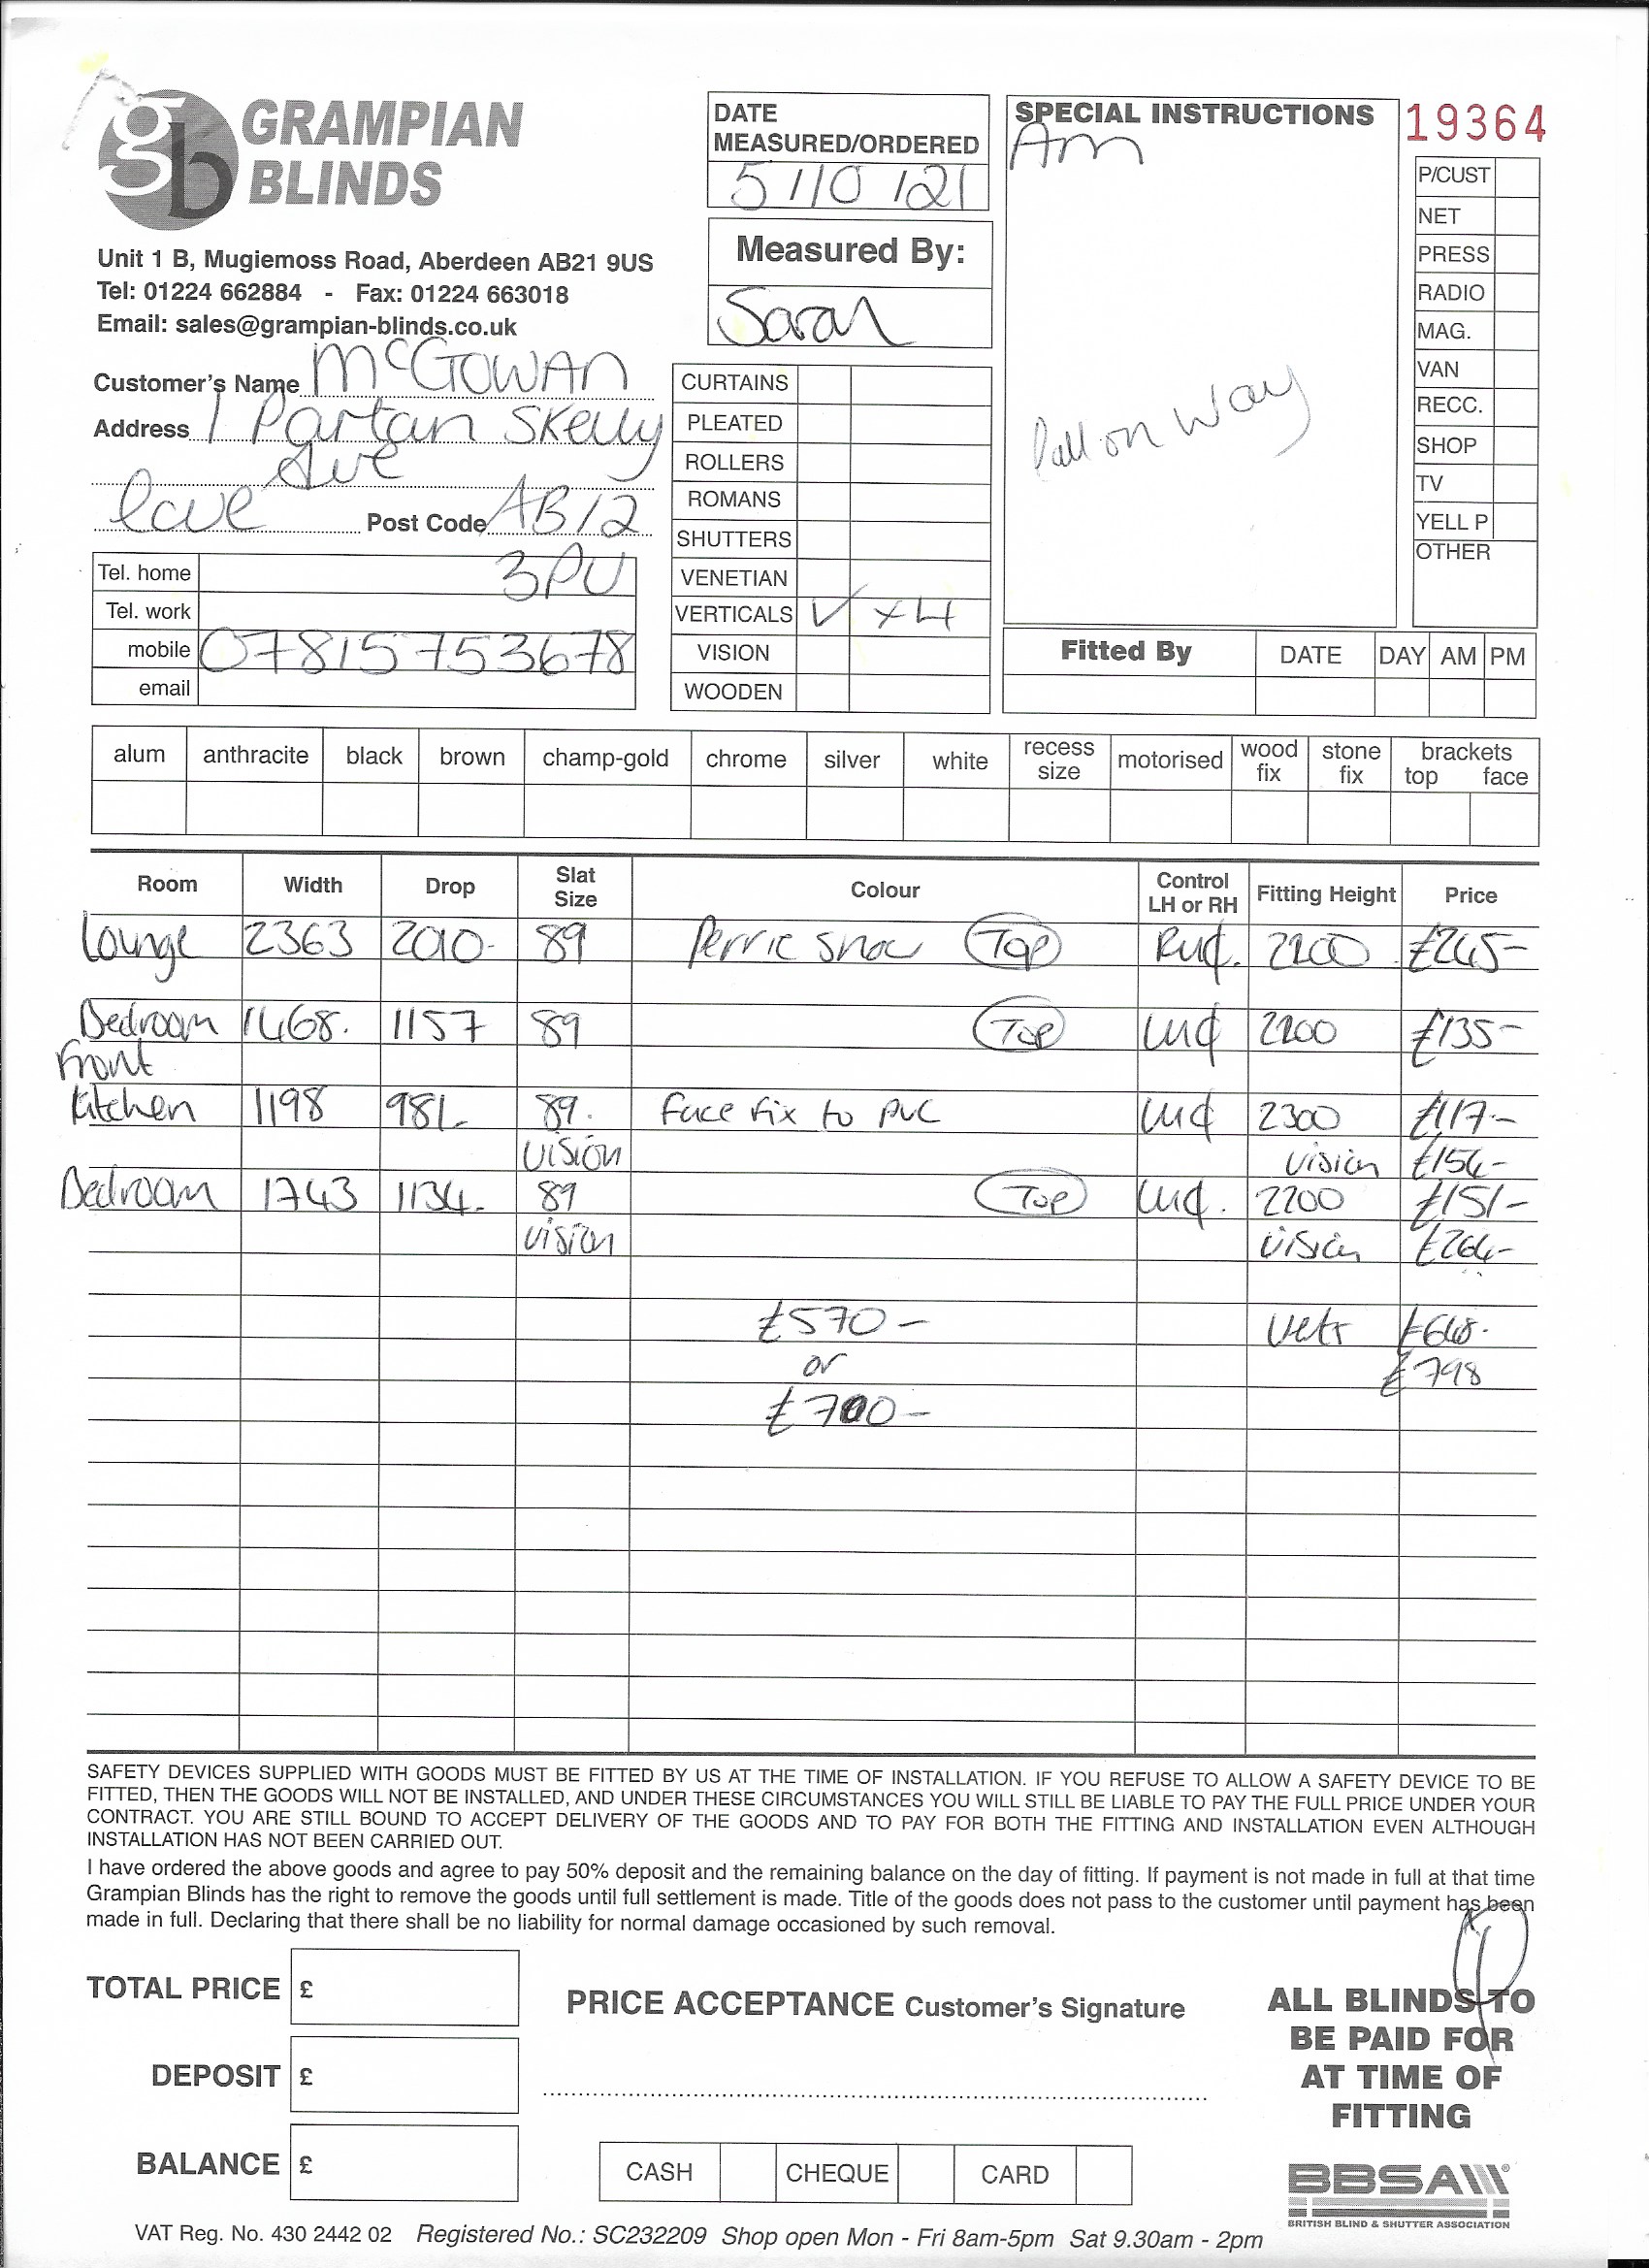 gb GRAMPIAN
BLINDS
Unit 1 B, Mugiemoss Road, Aberdeen AB21 9US
Tel: 01224 662884 - Fax: 01224 663018
Email: sales@grampian-blinds.co.uk
Customer's Name McGOWAN
Address 1 Partan Skelly
Ave
Cove Post Code AB12
3PU
Tel. home
Tel. work
mobile 07815753678
email
DATE
MEASURED/ORDERED
5/10/21
Measured By:
Sarah
CURTAINS
PLEATED
ROLLERS
ROMANS
SHUTTERS
VENETIAN
VERTICALS ✓ x4
VISION
WOODEN
SPECIAL INSTRUCTIONS
Am
Call on way
19364
P/CUST
NET
PRESS
RADIO
MAG.
VAN
RECC.
SHOP
TV
YELL P
OTHER
Fitted By DATE DAY AM PM
alum anthracite black brown champ-gold chrome silver white recess size motorised wood fix stone fix brackets top face
Room Width Drop Slat Size Colour Control LH or RH Fitting Height Price
Lounge 2363 2010 89 Perrie Snow Top 2200 £245-
Bedroom 1468. 1157 89 Top 2200 £135-
Front
Kitchen 1198 981 89. Face fix to PVC 2300 £117-
vision vision £154-
Bedroom 1743 1134. 89 Top 2200 £151-
vision vision £264-
£570- Verts £648-
or £798
£700-
SAFETY DEVICES SUPPLIED WITH GOODS MUST BE FITTED BY US AT THE TIME OF INSTALLATION. IF YOU REFUSE TO ALLOW A SAFETY DEVICE TO BE
FITTED, THEN THE GOODS WILL NOT BE INSTALLED, AND UNDER THESE CIRCUMSTANCES YOU WILL STILL BE LIABLE TO PAY THE FULL PRICE UNDER YOUR
CONTRACT. YOU ARE STILL BOUND TO ACCEPT DELIVERY OF THE GOODS AND TO PAY FOR BOTH THE FITTING AND INSTALLATION EVEN ALTHOUGH
INSTALLATION HAS NOT BEEN CARRIED OUT.
I have ordered the above goods and agree to pay 50% deposit and the remaining balance on the day of fitting. If payment is not made in full at that time
Grampian Blinds has the right to remove the goods until full settlement is made. Title of the goods does not pass to the customer until payment has been
made in full. Declaring that there shall be no liability for normal damage occasioned by such removal.
TOTAL PRICE £
DEPOSIT £
BALANCE £
PRICE ACCEPTANCE Customer's Signature
CASH CHEQUE CARD
ALL BLINDS TO
BE PAID FOR
AT TIME OF
FITTING
BBSA
BRITISH BLIND & SHUTTER ASSOCIATION
VAT Reg. No. 430 2442 02 Registered No.: SC232209 Shop open Mon - Fri 8am-5pm Sat 9.30am - 2pm